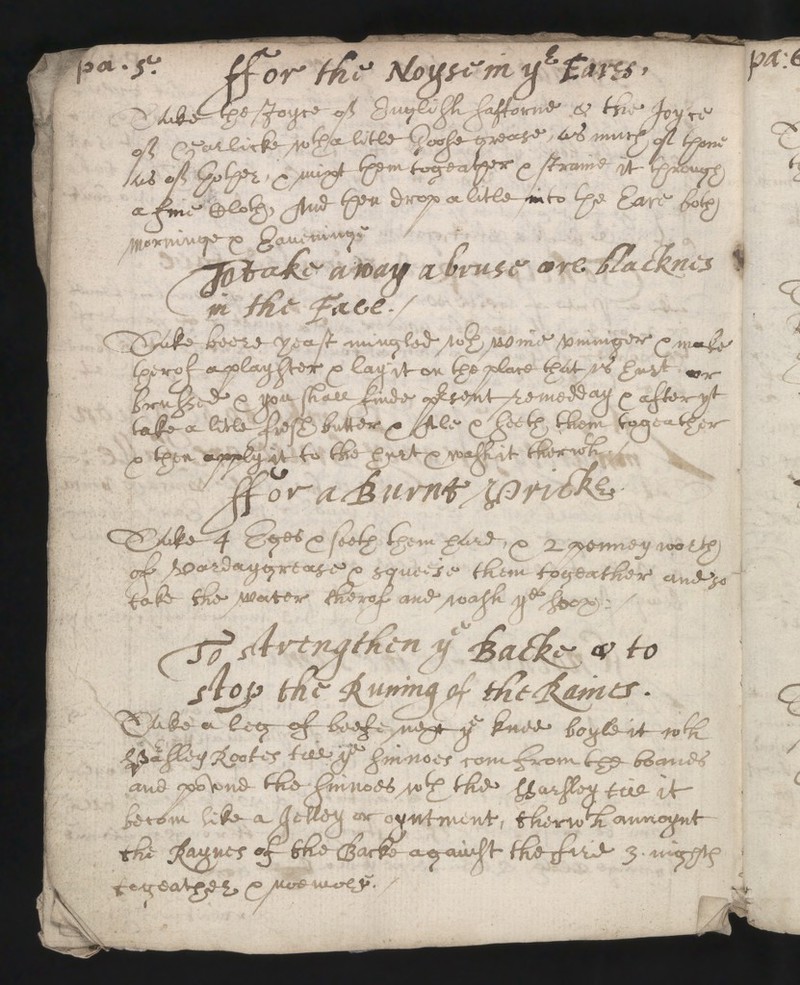 pa. 5.
ffor the Noyse in yᵉ Eares.
Take the Joyce of English safforne & the Joyce
of Garlicke wth a litle Goose grease, as much of thone
as of thother, & mixt them togeather & straine it through
a fine Cloth, And then drop a litle into the Eare both
morninge & Eaueninge
To take away a bruse ore blacknes
in the Face. /
Take beere yeast mingled wth wine viniger & make
therof a playster & lay it on the place that is hurt or
brused & you shall finde present remedday & after yt
take a litle fresh butter & Ale & seeth them togeather
& then apply it to the hurt & wash it therwth. /
ffor a Burnt Pricke
Take 4 Eges & seeth them hard, & 2 penney worth
of Vardaygrease & squeise them togeather and so
take the water therof and wash yᵉ
To strengthen yᵉ Backe & to
stop the Runing of the Raines.
Take a leg of beefe next yᵉ knee boyle it wth
Parsley Rootes till yᵉ sinnoes com from the boanes
and pound the sinnoes wth the Parsley till it
becom like a Jelley or oyntment, therwth annoynt
the Raynes of the Backe against the fire 3. nights
togeather & noe more. /
pa: 6